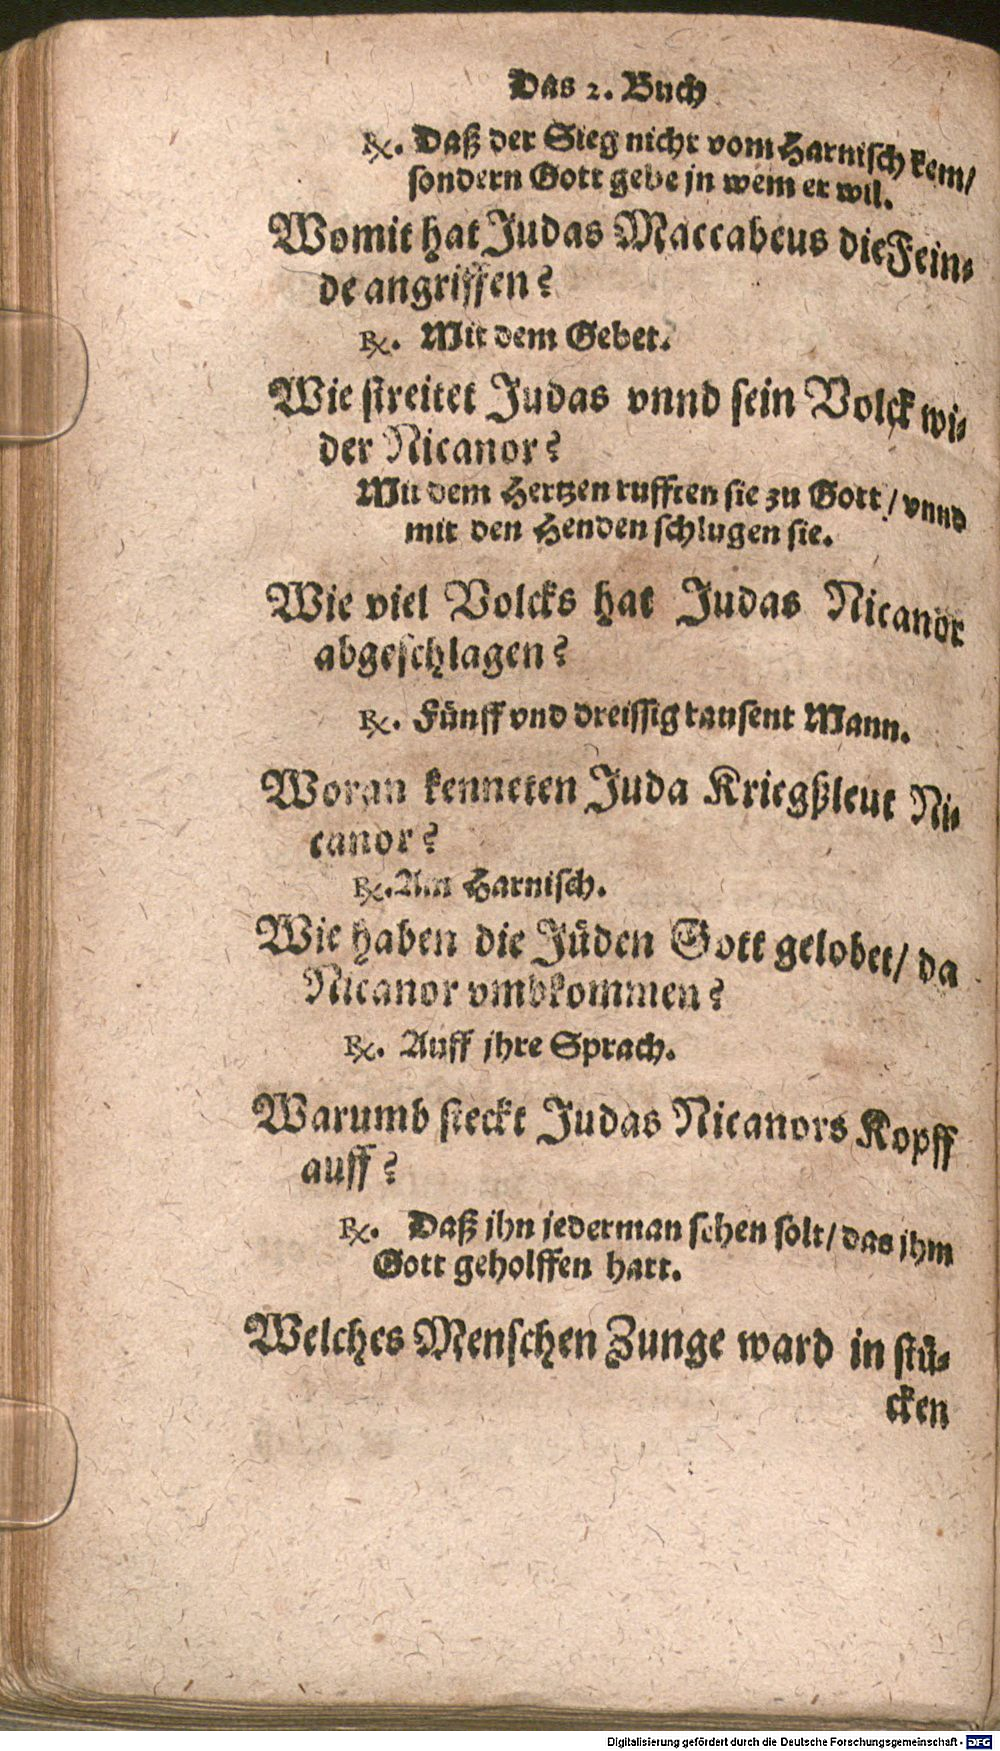 Das 2. Buch
℞. Daß der Sieg nicht vom Harnisch kem/
sondern Gott gebe jn wem er wil.
Womit hat Judas Maccabeus die Fein⸗
de angriffen?
℞. Mit dem Gebet.
Wie streitet Judas vnnd sein Volck wi⸗
der Nicanor?
Mit dem Hertzen rufften sie zu Gott/ vnnd
mit den Henden schlugen sie.
Wie viel Volcks hat Judas Nicanor
abgeschlagen?
℞. Fünff vnd dreissig tausent Mann.
Woran kenneten Juda Kriegßleut Ni⸗
canor?
℞. Am Harnisch.
Wie haben die Jüden Gott gelobet/ da
Nicanor vmbkommen?
℞. Auff jhre Sprach.
Warumb steckt Judas Nicanors Kopff
auff?
℞. Daß jhn jederman sehen solt/ das jhm
Gott geholffen hatt.
Welches Menschen Zunge ward in stü⸗
cken
Digitalisierung gefördert durch die Deutsche Forschungsgemeinschaft - DFG